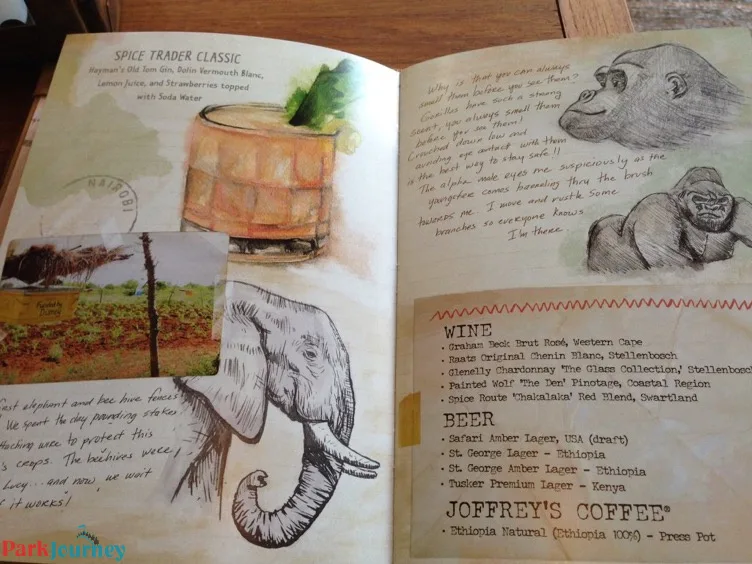 SPICE TRADER CLASSIC
Hayman's Old Tom Gin, Dolin Vermouth Blanc,
Lemon Juice, and Strawberries topped
with Soda Water
NAIROBI
Funded by
Disney
first elephant and bee hive fences
! We spent the day pounding stakes
ttaching wire to protect this
's crops. The beehives were
Lucy...and now, we wait
f it works!
ParkJourney
Why is that you can always
smell them before you see them?
Gorillas have such a strong
scent, you always smell them
before you see them!
Crouched down low and
avoiding eye contact with them
is the best way to stay safe!!
The alpha male eyes me suspiciously as the
youngster comes barreling thru the brush
towards me. I move and rustle some
branches so everyone knows
I'm there
WINE
· Graham Beck Brut Rosé, Western Cape
· Raats Original Chenin Blanc, Stellenbosch
· Glenelly Chardonnay 'The Glass Collection,' Stellenbosch
· Painted Wolf 'The Den' Pinotage, Coastal Region
· Spice Route 'Chakalaka' Red Blend, Swartland
BEER
· Safari Amber Lager, USA (draft)
· St. George Lager - Ethiopia
· St. George Amber Lager - Ethiopia
· Tusker Premium Lager - Kenya
JOFFREY'S COFFEE®
· Ethiopia Natural (Ethiopia 100%) - Press Pot